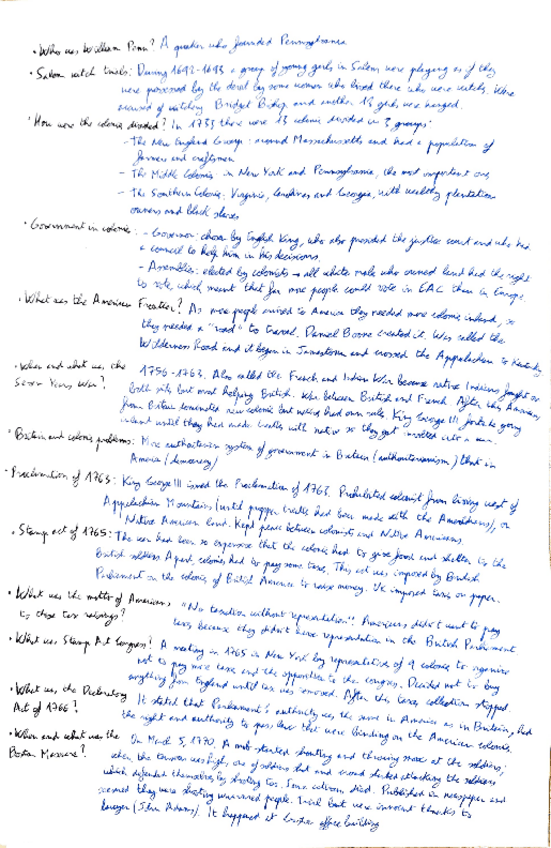 • Who was William Penn? A quaker who founded Pennsylvania
• Salem witch trials: During 1692-1693 a group of young girls in Salem were playing as if they
were possessed by the devil by some women who lived there who were witch. Were
accused of witching. Bridget Bishop and another 18 girls were hanged.
• How were the colonies divided? In 1733 there were 13 colonies divided in 3 groups:
- The New England Group: around Massachusetts and had a population of
farmers and craftsmen
- The Middle Colonies: in New York and Pennsylvania, the most important ones
- The Southern Colonies: Virginia, Carolinas and Georgia, with wealthy plantation
owners and black slaves
• Government in colonies: - Governor: chosen by English King, who also presided the justice court and who had
a council to help him in his decisions.
- Assemblies: elected by colonists → all white male who owned land had the right
to vote, which meant that far more people could vote in EAC than in Europe.
• What was the American Frontier? As more people arrived to America they needed more colonies inland, so
they needed a "road" to travel. Daniel Boone created it. Was called the
Wilderness Road and it began in Jamestown and crossed the Appalachian to Kentucky.
• When and what was the Seven Years War? 1756-1763. Also called the French and Indian War because native Indians fought on
both sides but most helping British. War between British and French. After this Americans
from Britain new colonies but had own rule. King George III to going
inland until they had made treaties with native so they get involved into a war.
• Britain and colonies problems: More authoritarian system of government in Britain (authoritarianism) than in
America (democracy)
• Proclamation of 1763: King George III issued the Proclamation of 1763. Prohibited colonist from living west of
Appalachian Mountains (until proper treaties had been made with the Amerindians), on
Native American land. Kept peace between colonists and Native Americans.
• Stamp act of 1765: The war had been so expensive that the colonies had to give food and shelter to the
British soldiers. Apart, colonies had to pay some taxes. This act was imposed by British
Parliament on the colonies of British America to raise money. It imposed taxes on paper.
• What was the motto of Americans to those tax? "No taxation without representation". Americans didn't want to pay
taxes because they didn't have representation in the British Parliament
• What was Stamp Act Congress? A meeting in 1765 in New York by representatives of 9 colonies to organise
not to pay more taxes and the opposition to the congress. Decided not to buy
anything from England until tax was removed. After this taxes collection stopped.
• What was the Declaratory Act of 1766? It stated that Parliament's authority was the same in America as in Britain, had
the right and authority to pass laws that were binding on the American colonies.
• When and what was the Boston Massacre? On March 5, 1770. A mob started shouting and throwing at the soldiers;
when the tension was high, one of soldiers and started attacking the soldiers
which defended themselves by shooting. Some died. Published in newspaper and
seemed they were shooting unarmed people. Trial but were innocent thanks to
lawyer (John Adams). It happened at custom office building